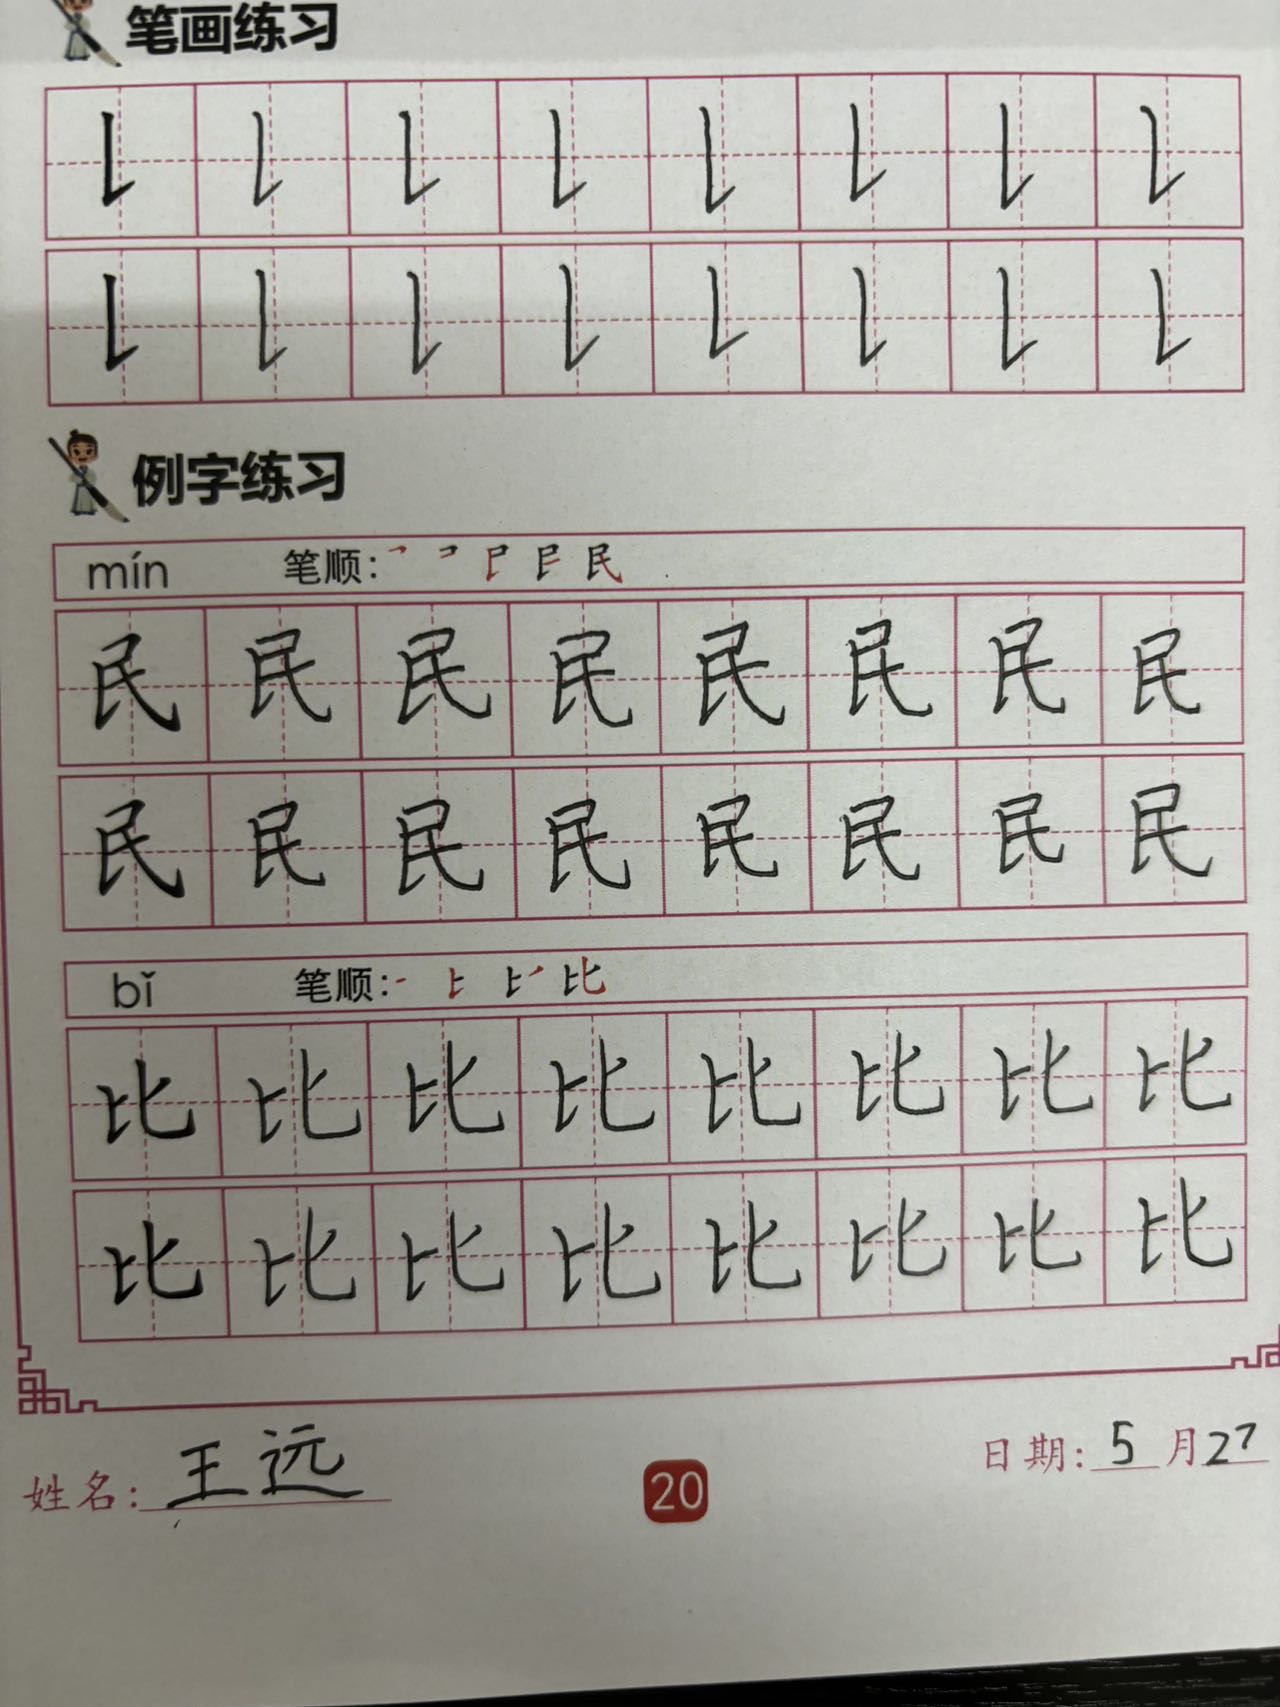 笔画练习
例字练习
mín 笔顺:
民 民 民 民 民 民 民 民
民 民 民 民 民 民 民 民
bǐ 笔顺:
比 比 比 比 比 比 比 比
比 比 比 比 比 比 比 比
姓名: 王远 20 日期: 5 月 27